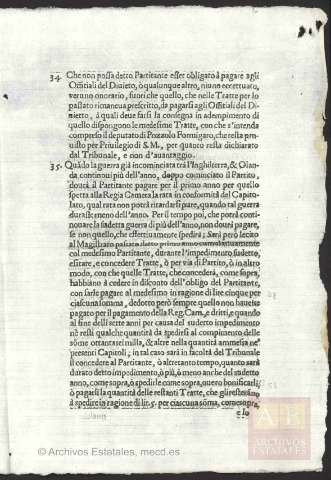 34. Che non possa detto Partitante esser obligato à pagare agli
Offitiali del Divieto, ò qualunque altro, niun eccettuato,
verun onorario, fuori che quello, che nelle Tratte per lo
passato rimaneva prescritto, da pagarsi agli Offitiali del Di-
vietto, à quali deve farsi la consegna in adempimento di
quello dispongono le medesime Tratte, con che s'intenda
compreso il deputato di Prozaulo Formigaro, che resta pro-
visto per Privilegio di S.M., per quanto resta dichiarato
dal Tribunale, e non d'avantaggio.
35. Quādo la guerra già incominciata trà l'Inghilterra, & Olan-
da, continovi più dell'anno, doppo cominciato il Partito,
doverà il Partitante pagare per il primo anno per quello
spetta alla Regia Camera la rata in conformità del Capito-
lato, qual rata non potrà ritardarsi pure, quando tal guerra
durasse meno dell'anno. Per il tempo poi, che potrà conti-
novare la sudetta guerra di più dell'anno, non doverà pagare,
se non quello, che effettivamente spedirà; Sarà però lecito
al Magistrato passato detto primo anno cumulativamente
col medesimo Partitante, durante l'impedimento sudetto,
esitare, e concedere Tratte, ò per via di Partito, ò in altro
modo, con che quelle Tratte, che concederà, come sopra,
habbiano à cedere in disconto dell'obligo del Partitante,
con farle pagare al medesimo in ragione di lire cinque per
ciascuna somma, dedotto però sempre quello non havesse
pagato per il pagamento della Reg. Cam. e dritti, e quando
al fine delli sette anni per causa del sudetto impedimento
nè resti qualche quantità da spedirsi al compimento delle
sōme ottantasei milla, & altre nella quantità ammessa ne'
presenti Capitoli; in tal caso sarà in facoltà del Tribunale
il concedere al Partitante, ò altretanto tempo, quanto sarà
durato detto impedimento, ò più, ò meno anche del sudetto
anno, come sopra, ò spedirle come sopra, overo bonificarli,
ò pagarsi la quantità delle restanti Tratte, che gli restessero
à spedire in ragione di lir. 5. per ciascuna sōma, come sopra,
e lo
ARCHIVOS
ESTATALES
© Archivos Estatales, mecd.es